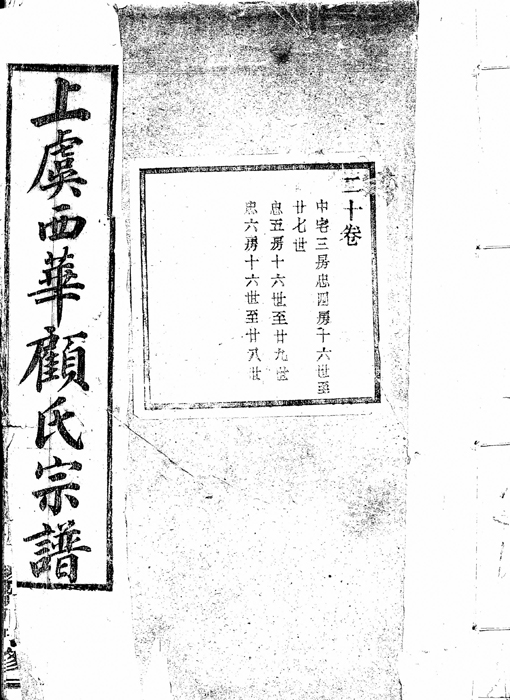 二十卷
中宅三房忠四房十六世至
廿七世
忠五房十六世至廿九世
忠六房十六世至廿八世
上虞西華顧氏宗譜